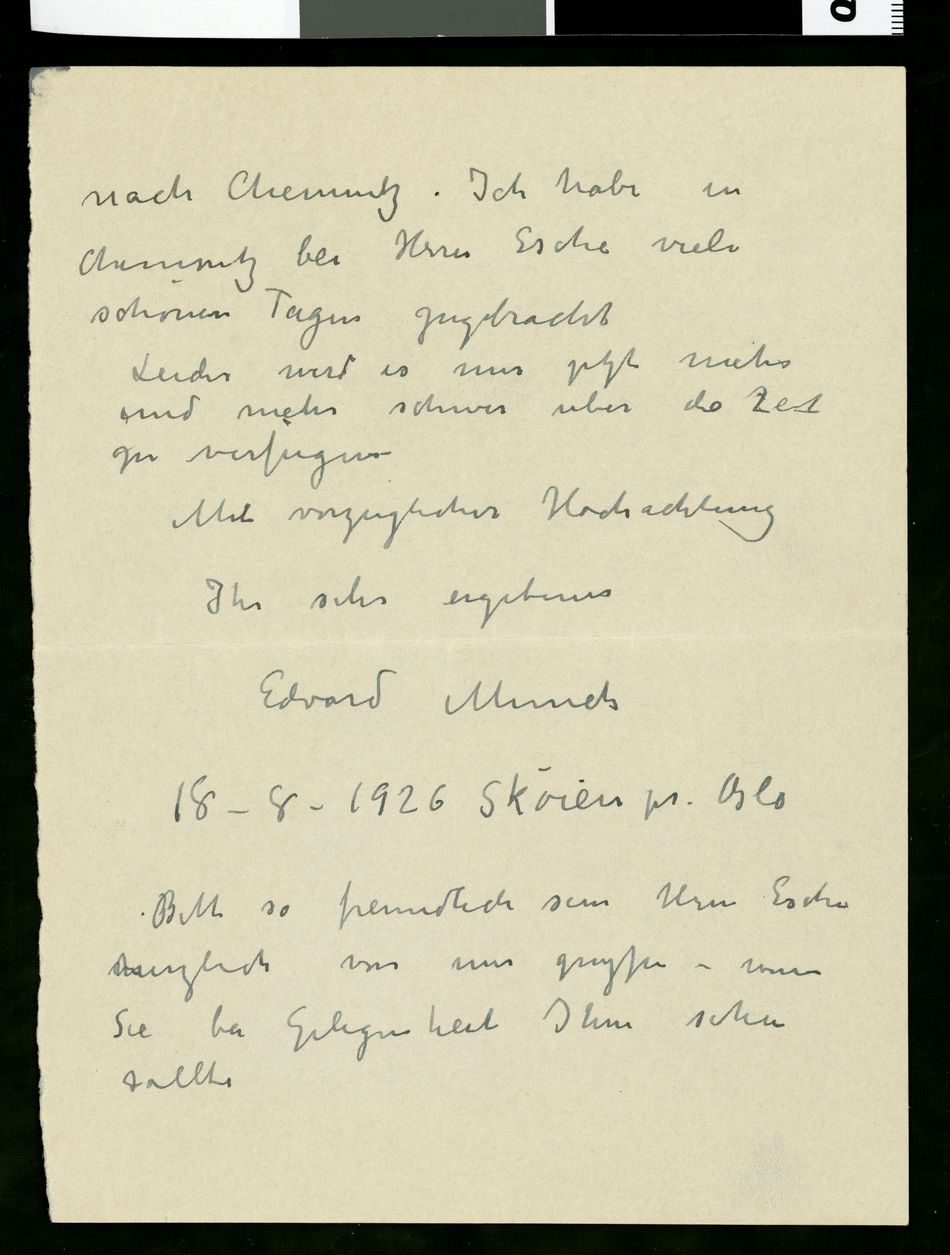 nach Chemnitz. Ich habe in
Chemnitz bei Herrn Esche viele
schönen Tagen zugebracht
Leider wird es mir jetzt mehr
und mehr schwer über die Zeit
zu verfügen
Mit vorzüglicher Hochachtung
Ihr sehr ergebener
Edvard Munch
18-8-1926 Sköien pr. Oslo
Bitte so freundlich sein Herrn Esche
herzlich von mir grüssen – wenn
Sie bei Gelegenheit Ihm sehen
sollte